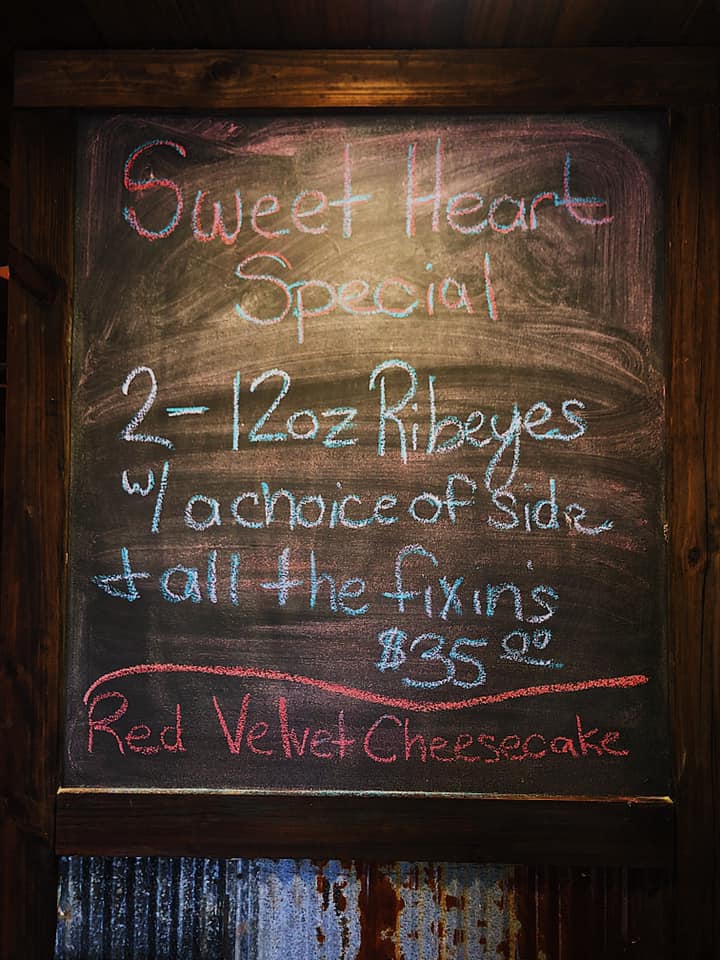 Sweet Heart
Special
2-12oz Ribeyes
w/ a choice of side
+ all the fixin's
$35.00
Red Velvet Cheesecake